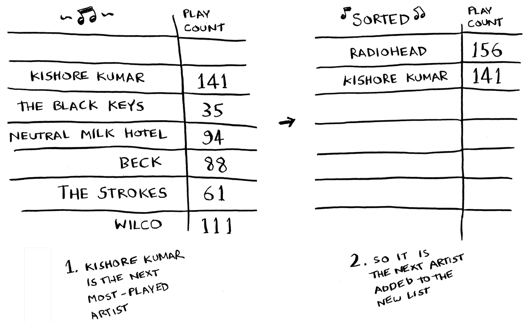 ~♫~ PLAY COUNT
KISHORE KUMAR 141
THE BLACK KEYS 35
NEUTRAL MILK HOTEL 94
BECK 88
THE STROKES 61
WILCO 111
1. KISHORE KUMAR
IS THE NEXT
MOST-PLAYED
ARTIST
♪ SORTED ♫ PLAY COUNT
RADIOHEAD 156
KISHORE KUMAR 141
2. SO IT IS
THE NEXT ARTIST
ADDED TO THE
NEW LIST